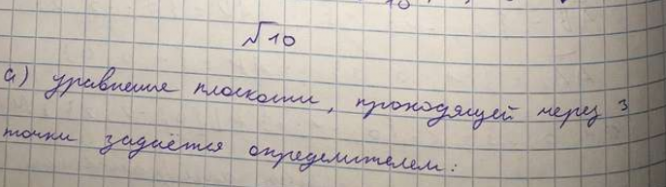 √10
а) уравнение плоскости, проходящей через 3
точки задаётся определителем: